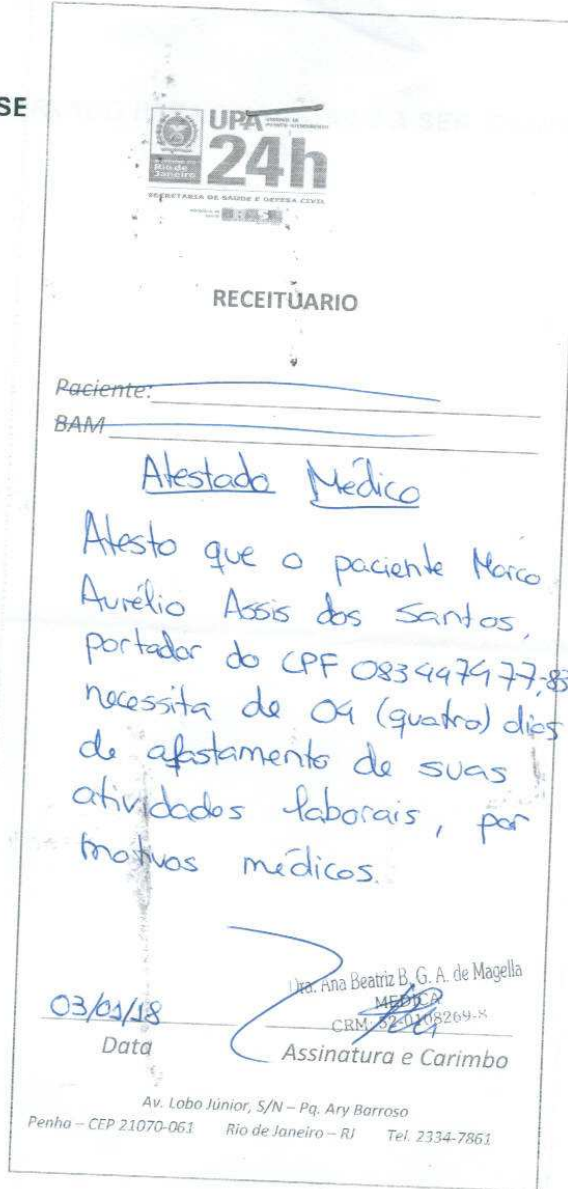 SE
UPA UNIDADE DE PRONTO ATENDIMENTO
24h
Rio de Janeiro
SECRETARIA DE SAÚDE E DEFESA CIVIL
RECEITUARIO
Paciente:
BAM
Atestado Médico
Atesto que o paciente Marco
Aurélio Assis dos Santos,
portador do CPF 083447477-83
necessita de 04 (quatro) dias
de afastamento de suas
atividades laborais, por
motivos médicos.
Dra. Ana Beatriz B. G. A. de Magella
MÉDICA
CRM: 52-0108269-8
03/01/18
Data
Assinatura e Carimbo
Av. Lobo Júnior, S/N – Pq. Ary Barroso
Penha – CEP 21070-061 Rio de Janeiro – RJ Tel. 2334-7861